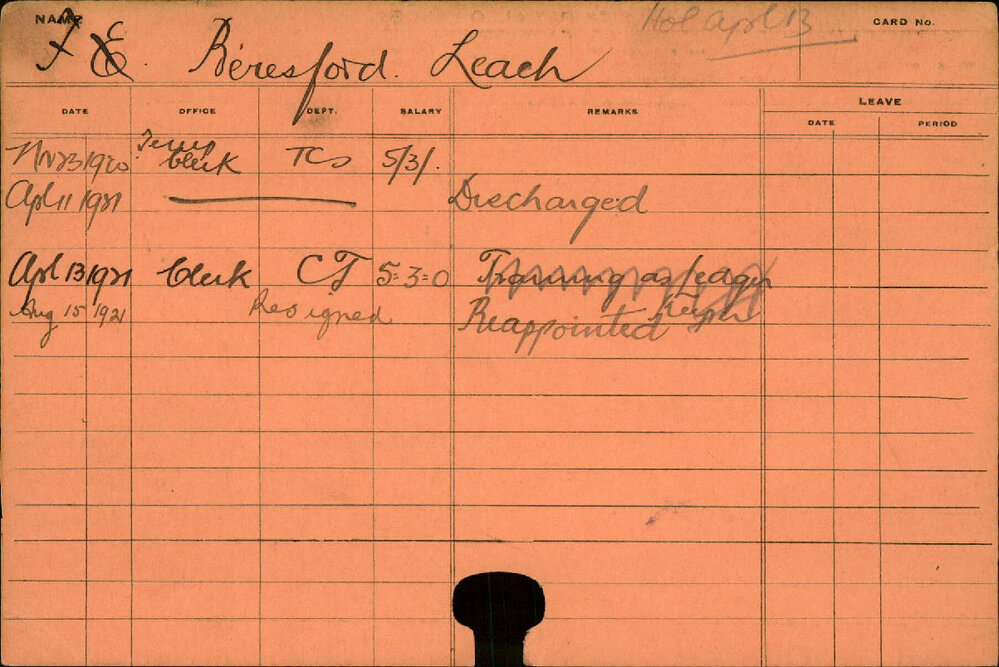 NAME
Hol April 13
CARD No.
F E. Beresford. Leach
DATE OFFICE DEPT. SALARY REMARKS LEAVE
DATE PERIOD
Nov 23 1920 Temp Clerk TCs 5/3/.
Apl 11 1921 Discharged
Apl 13 1921 Clerk CT 5=3=0 Training as ledger keeper
Aug 15 1921 Resigned Reappointed